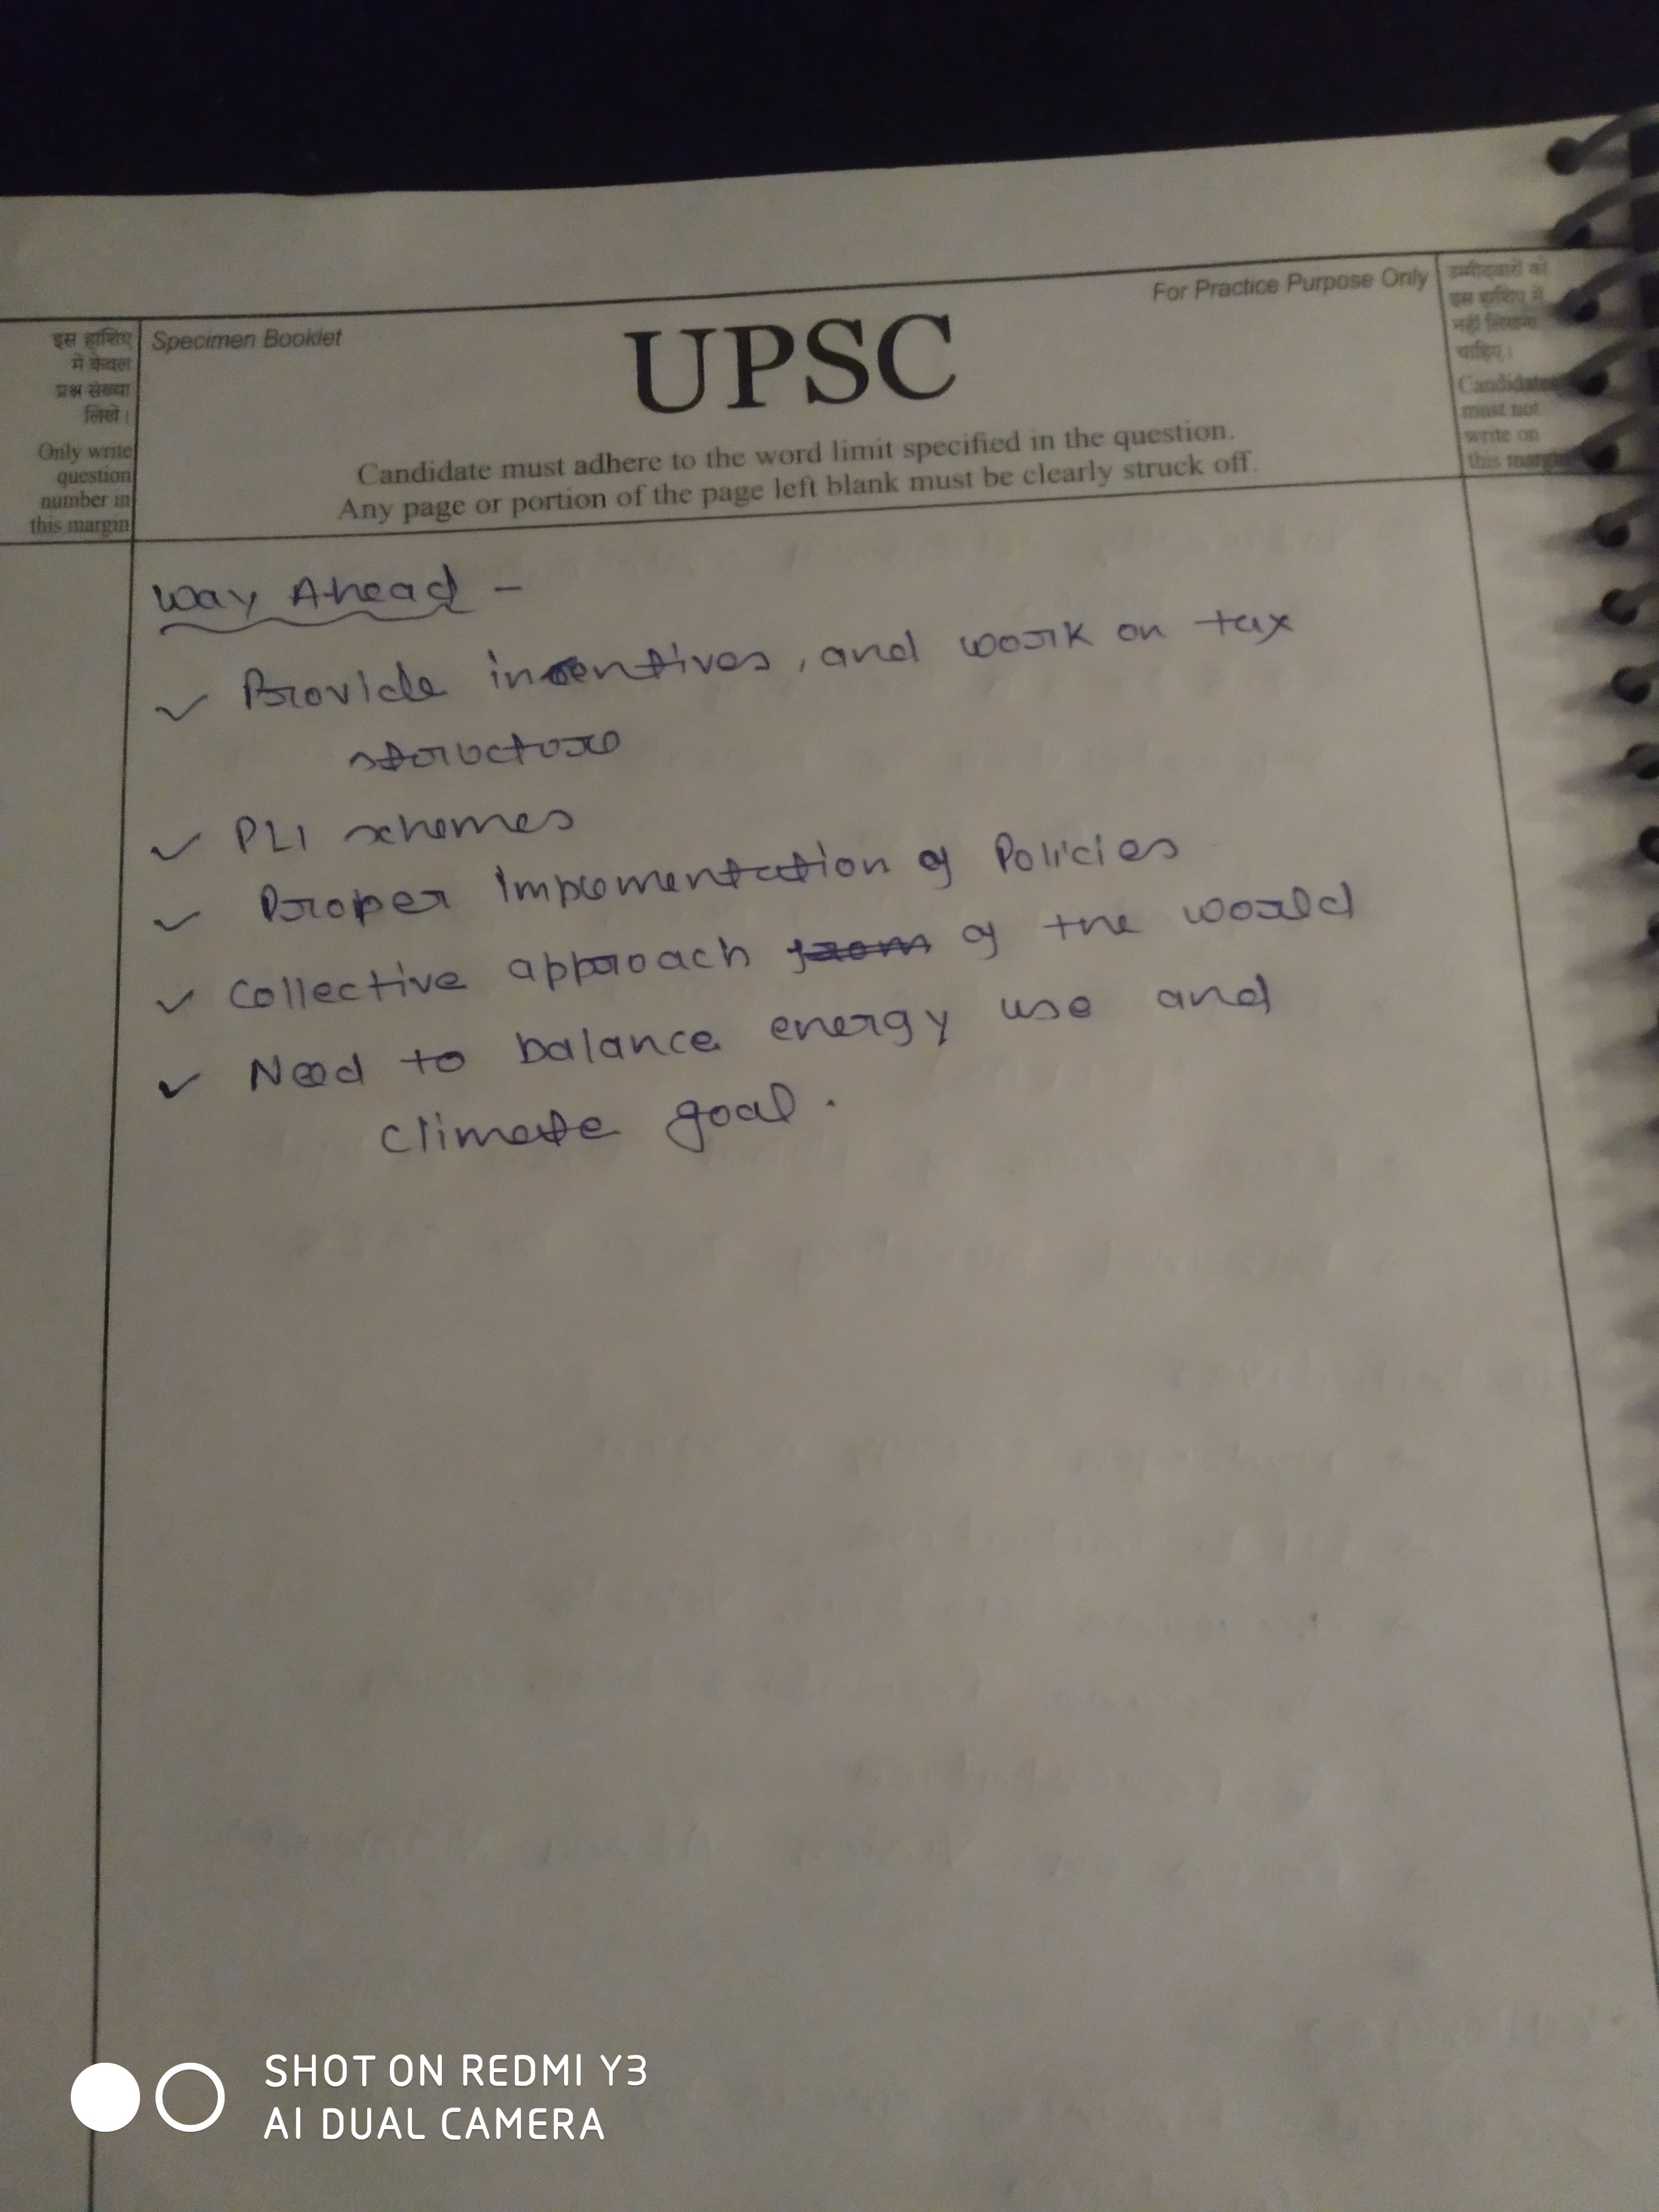 For Practice Purpose Only
इस हाशिए
में केवल
प्रश्न संख्या
लिखें।
Only write
question
number in
this margin
Specimen Booklet
UPSC
Candidate must adhere to the word limit specified in the question.
Any page or portion of the page left blank must be clearly struck off.
उम्मीदवारों को
इस हाशिए में
नहीं लिखना
चाहिए।
Candidates
must not
write on
this margin
Way Ahead -
✓ Provide incentives, and work on tax
structure
✓ PLI schemes
✓ Proper Implementation of Policies
✓ Collective approach from of the world
✓ Need to balance energy use and
climate goal.
SHOT ON REDMI Y3
AI DUAL CAMERA